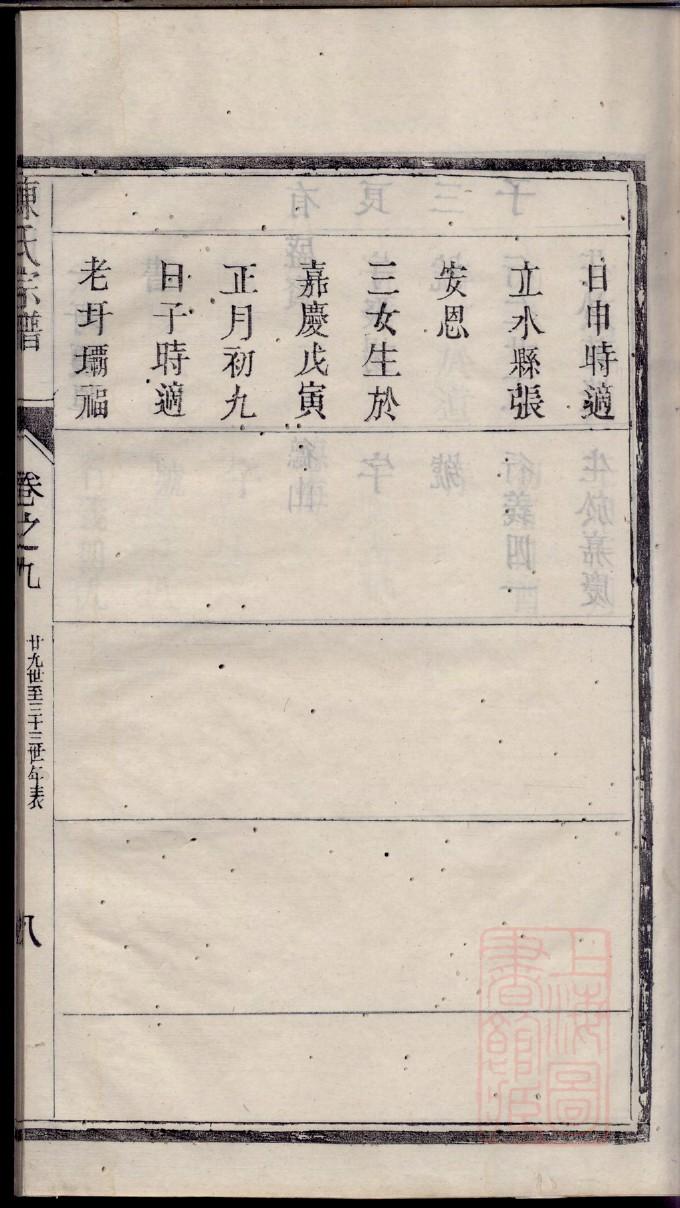 日申時適
立水縣張
安恩
三女生於
嘉慶戊寅
正月初九
日子時適
老圩壩福
陳氏宗譜
卷之九
廿九世至三十三世年表
八
上海圖書館藏